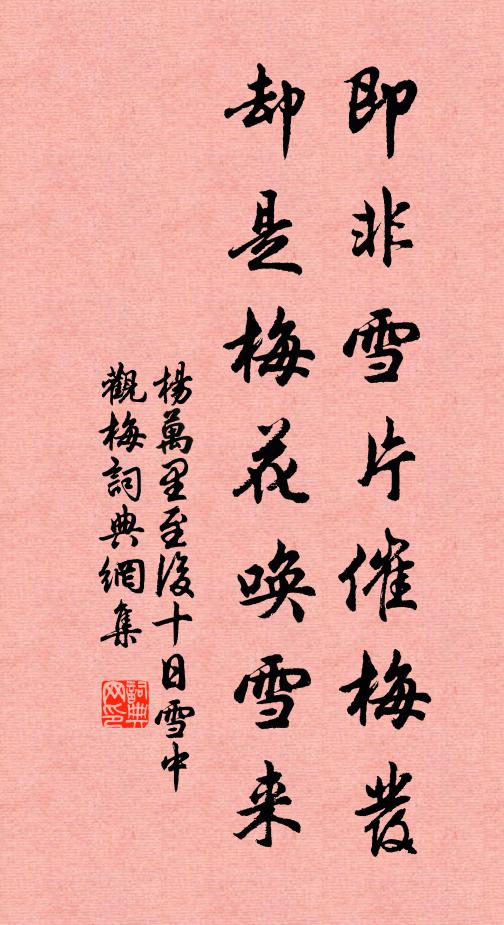 即非雪片催梅發
却是梅花唤雪来
楊萬里至後十日雪中
觀梅詞典網集
詞典
网印